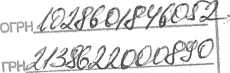 ОГРН 1028601846052
ГРН 2138622000890